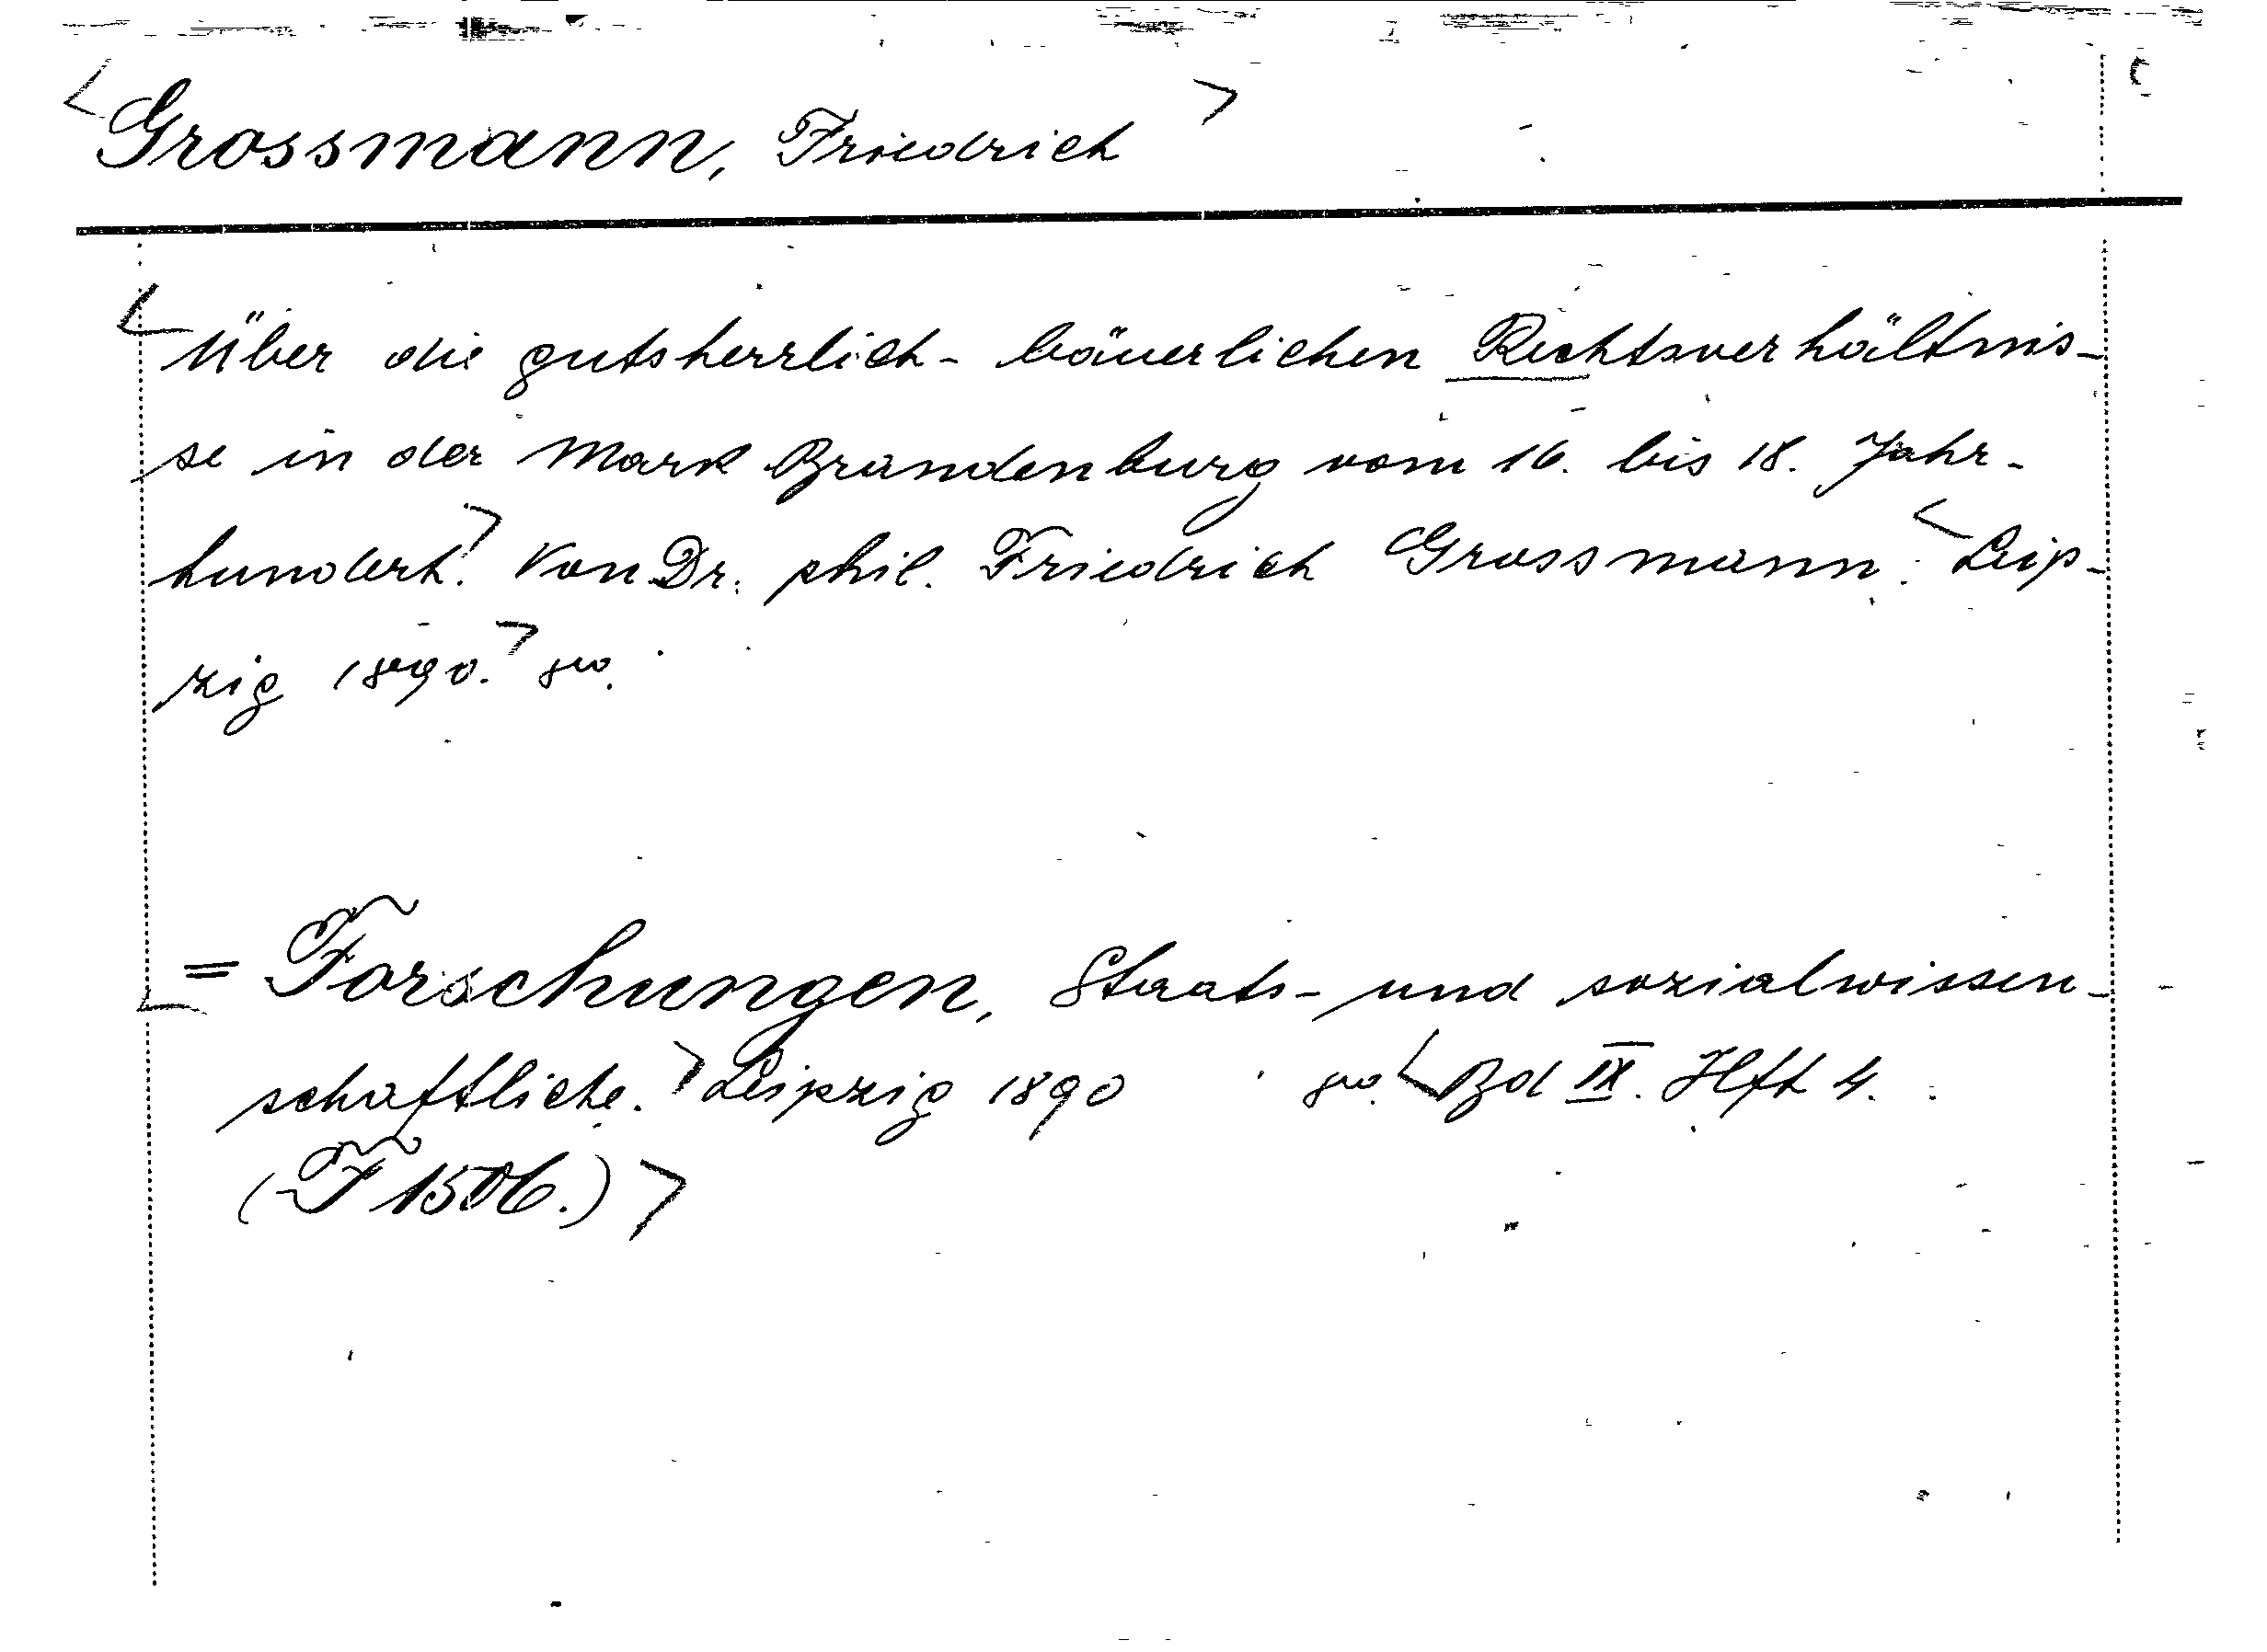 <Grossmann, Friedrich>
<Über die gutsherrlich-bäuerlichen Rechtsverhältnis-
se in der Mark Brandenburg vom 16. bis 18. Jahr-
hundert.> Von Dr. phil. Friedrich Grossmann. <Leip-
zig 1890.> 8vo.
<= Forschungen, Staats- und sozialwissen-
schaftliche.> Leipzig 1890 8vo. <Bd IX. Hft 4.
(F 150b.)>